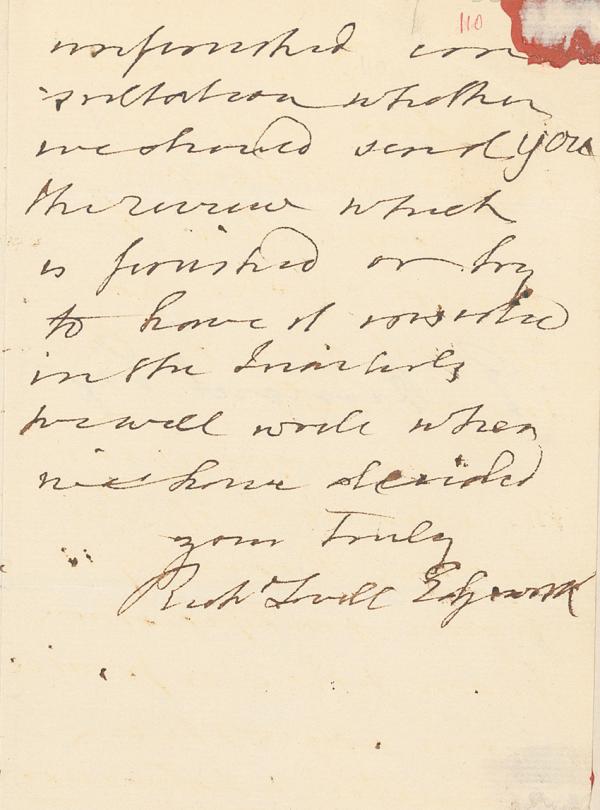 110
unfinished con
sultation whether
we should send you
the review which
is finished or try
to have it inserted
in the Quarterly
we will write when
we have decided
your Truly
Richd Lovell Edgeworth